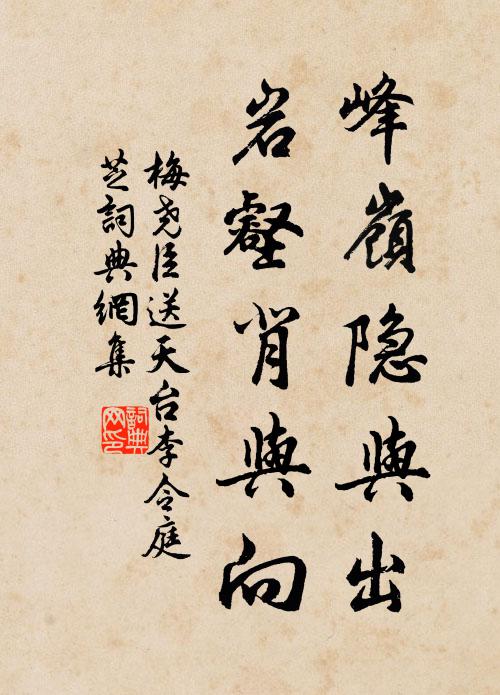 峰嶺隐與出
岩壑背與向
梅堯臣送天台李令庭
芝詞典網集
詞典网印